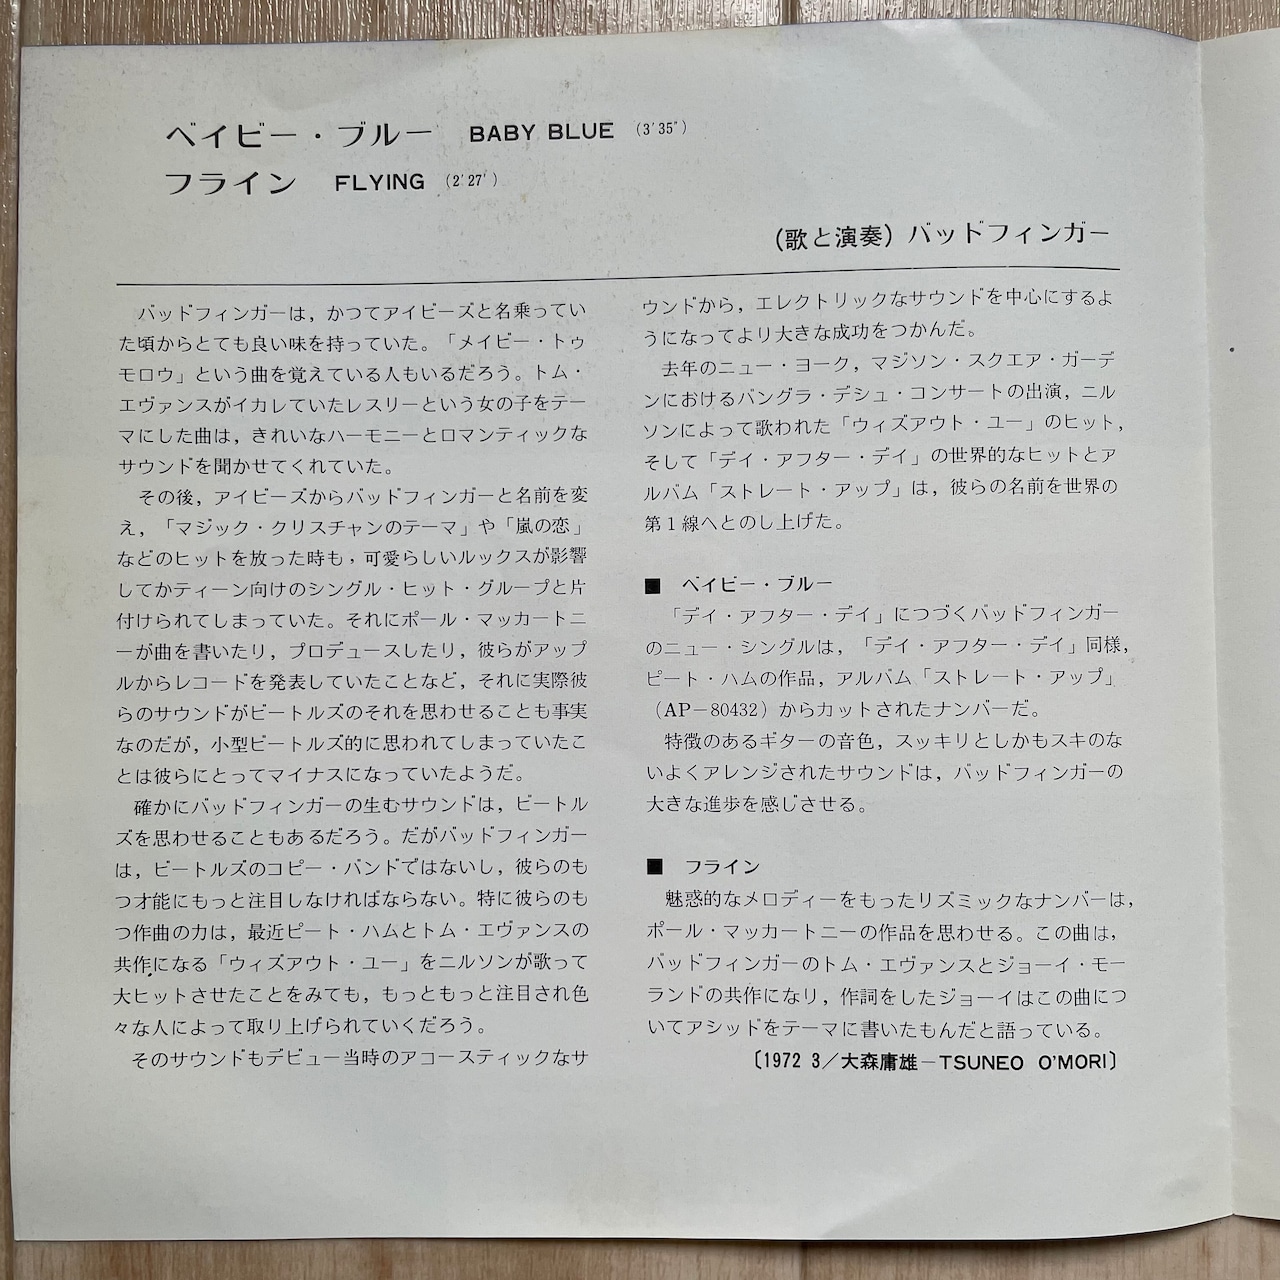 ベイビー・ブルー BABY BLUE (3′35″)
フライン FLYING (2′27″)
(歌と演奏) バッドフィンガー
バッドフィンガーは，かつてアイビーズと名乗ってい
た頃からとても良い味を持っていた。「メイビー・トゥ
モロウ」という曲を覚えている人もいるだろう。トム・
エヴァンスがイカレていたレスリーという女の子をテー
マにした曲は，きれいなハーモニーとロマンティックな
サウンドを聞かせてくれていた。
その後，アイビーズからバッドフィンガーと名前を変
え，「マジック・クリスチャンのテーマ」や「嵐の恋」
などのヒットを放った時も，可愛らしいルックスが影響
してかティーン向けのシングル・ヒット・グループと片
付けられてしまっていた。それにポール・マッカートニ
ーが曲を書いたり，プロデュースしたり，彼らがアップ
ルからレコードを発表していたことなど，それに実際彼
らのサウンドがビートルズのそれを思わせることも事実
なのだが，小型ビートルズ的に思われてしまっていたこ
とは彼らにとってマイナスになっていたようだ。
確かにバッドフィンガーの生むサウンドは，ビートル
ズを思わせることもあるだろう。だがバッドフィンガー
は，ビートルズのコピー・バンドではないし，彼らのも
つ才能にもっと注目しなければならない。特に彼らのも
つ作曲の力は，最近ピート・ハムとトム・エヴァンスの
共作になる「ウィズアウト・ユー」をニルソンが歌って
大ヒットさせたことをみても，もっともっと注目され色
々な人によって取り上げられていくだろう。
そのサウンドもデビュー当時のアコースティックなサ
ウンドから，エレクトリックなサウンドを中心にするよ
うになってより大きな成功をつかんだ。
去年のニュー・ヨーク，マジソン・スクエア・ガーデ
ンにおけるバングラ・デシュ・コンサートの出演，ニル
ソンによって歌われた「ウィズアウト・ユー」のヒット，
そして「デイ・アフター・デイ」の世界的なヒットとア
ルバム「ストレート・アップ」は，彼らの名前を世界の
第1線へとのし上げた。
■ ベイビー・ブルー
「デイ・アフター・デイ」につづくバッドフィンガー
のニュー・シングルは，「デイ・アフター・デイ」同様，
ピート・ハムの作品，アルバム「ストレート・アップ」
（AP－80432）からカットされたナンバーだ。
特徴のあるギターの音色，スッキリとしかもスキのな
いよくアレンジされたサウンドは，バッドフィンガーの
大きな進歩を感じさせる。
■ フライン
魅惑的なメロディーをもったリズミックなナンバーは，
ポール・マッカートニーの作品を思わせる。この曲は，
バッドフィンガーのトム・エヴァンスとジョーイ・モー
ランドの共作になり，作詞をしたジョーイはこの曲につ
いてアシッドをテーマに書いたもんだと語っている。
〔1972 3／大森庸雄－TSUNEO O'MORI〕